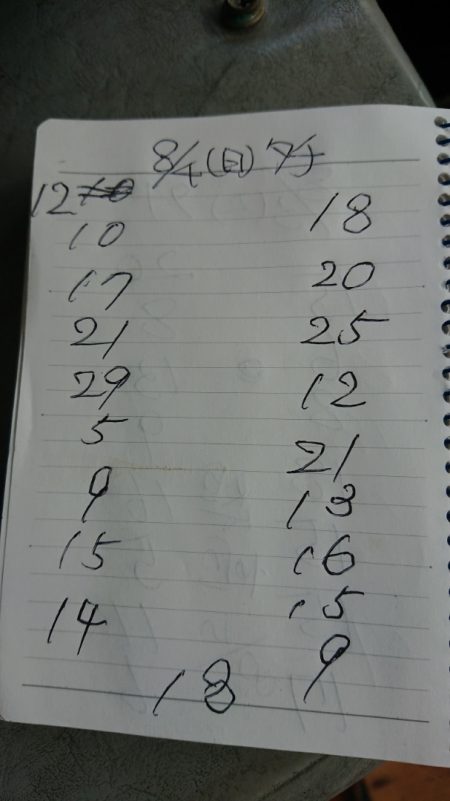 8/4(日)
12
10
17
21
29
5
9
15
14
18
20
25
12
21
13
16
15
9
18